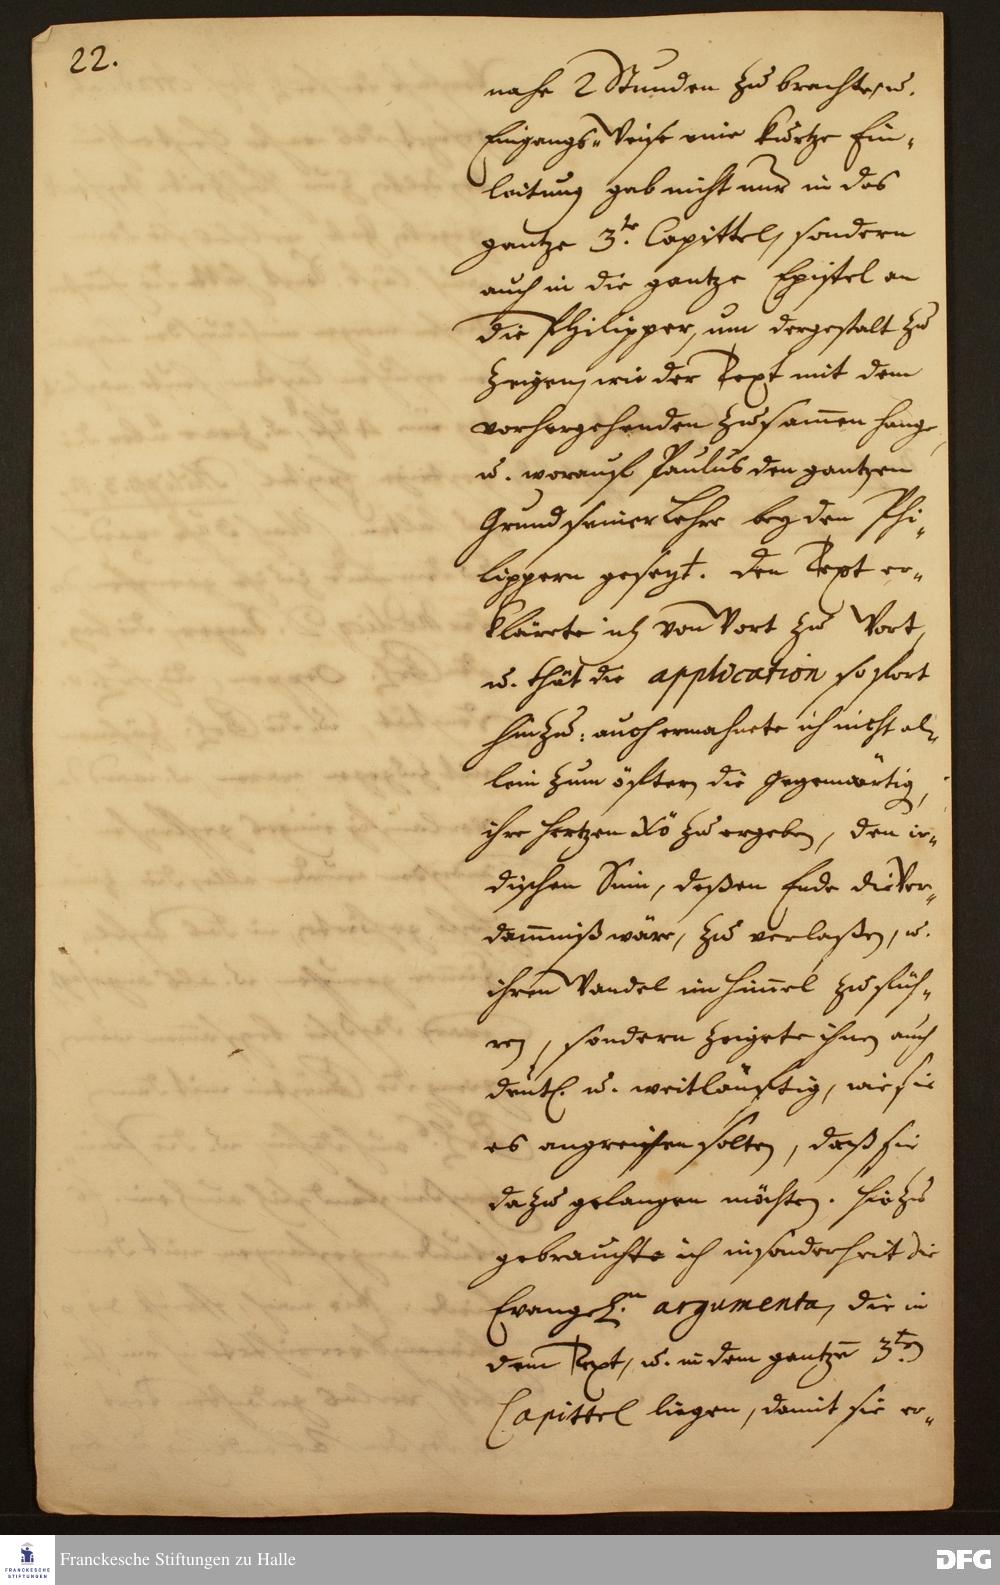 22.
nahe 2 Stunden zu brachte, u.
Eingangs-Weise eine kurtze Ein-
leitung gab nicht nur in das
gantze 3.te Capittel, sondern
auch in die gantze Epistel an
die Philipper, um dergestalt zu
zeigen, wie der Text mit dem
vorhergehenden zusam̄en hange,
u. worauf Paulus den gantzen
Grund seiner Lehre bey den Phi-
lippern gesezt. Den Text er-
klärete ich von Wort zu Wort,
u. thät die application sofort
hinzu: auch ermahnete ich nicht al-
lein zum öftern die Gegenwärtig,
ihre Hertzen Xo zu ergeben, den ir-
dischen Sinn, deßen Ende die Ver-
dam̄niß wäre, zu verlaßen, u.
ihren Wandel im Him̄el zu füh-
ren, sondern zeigete ihnen auch
deutl. u. weitläuftig, wie sie
es angreifen solten, daß sie
dazu gelangen möchten. Hiezu
gebrauchte ich insonderheit die
Evangel.n argumenta, die in
dem Text, u. in dem gantzen 3.ten
Capittel liegen, damit sie er-
FRANCKESCHE
STIFTUNGEN
Franckesche Stiftungen zu Halle
DFG